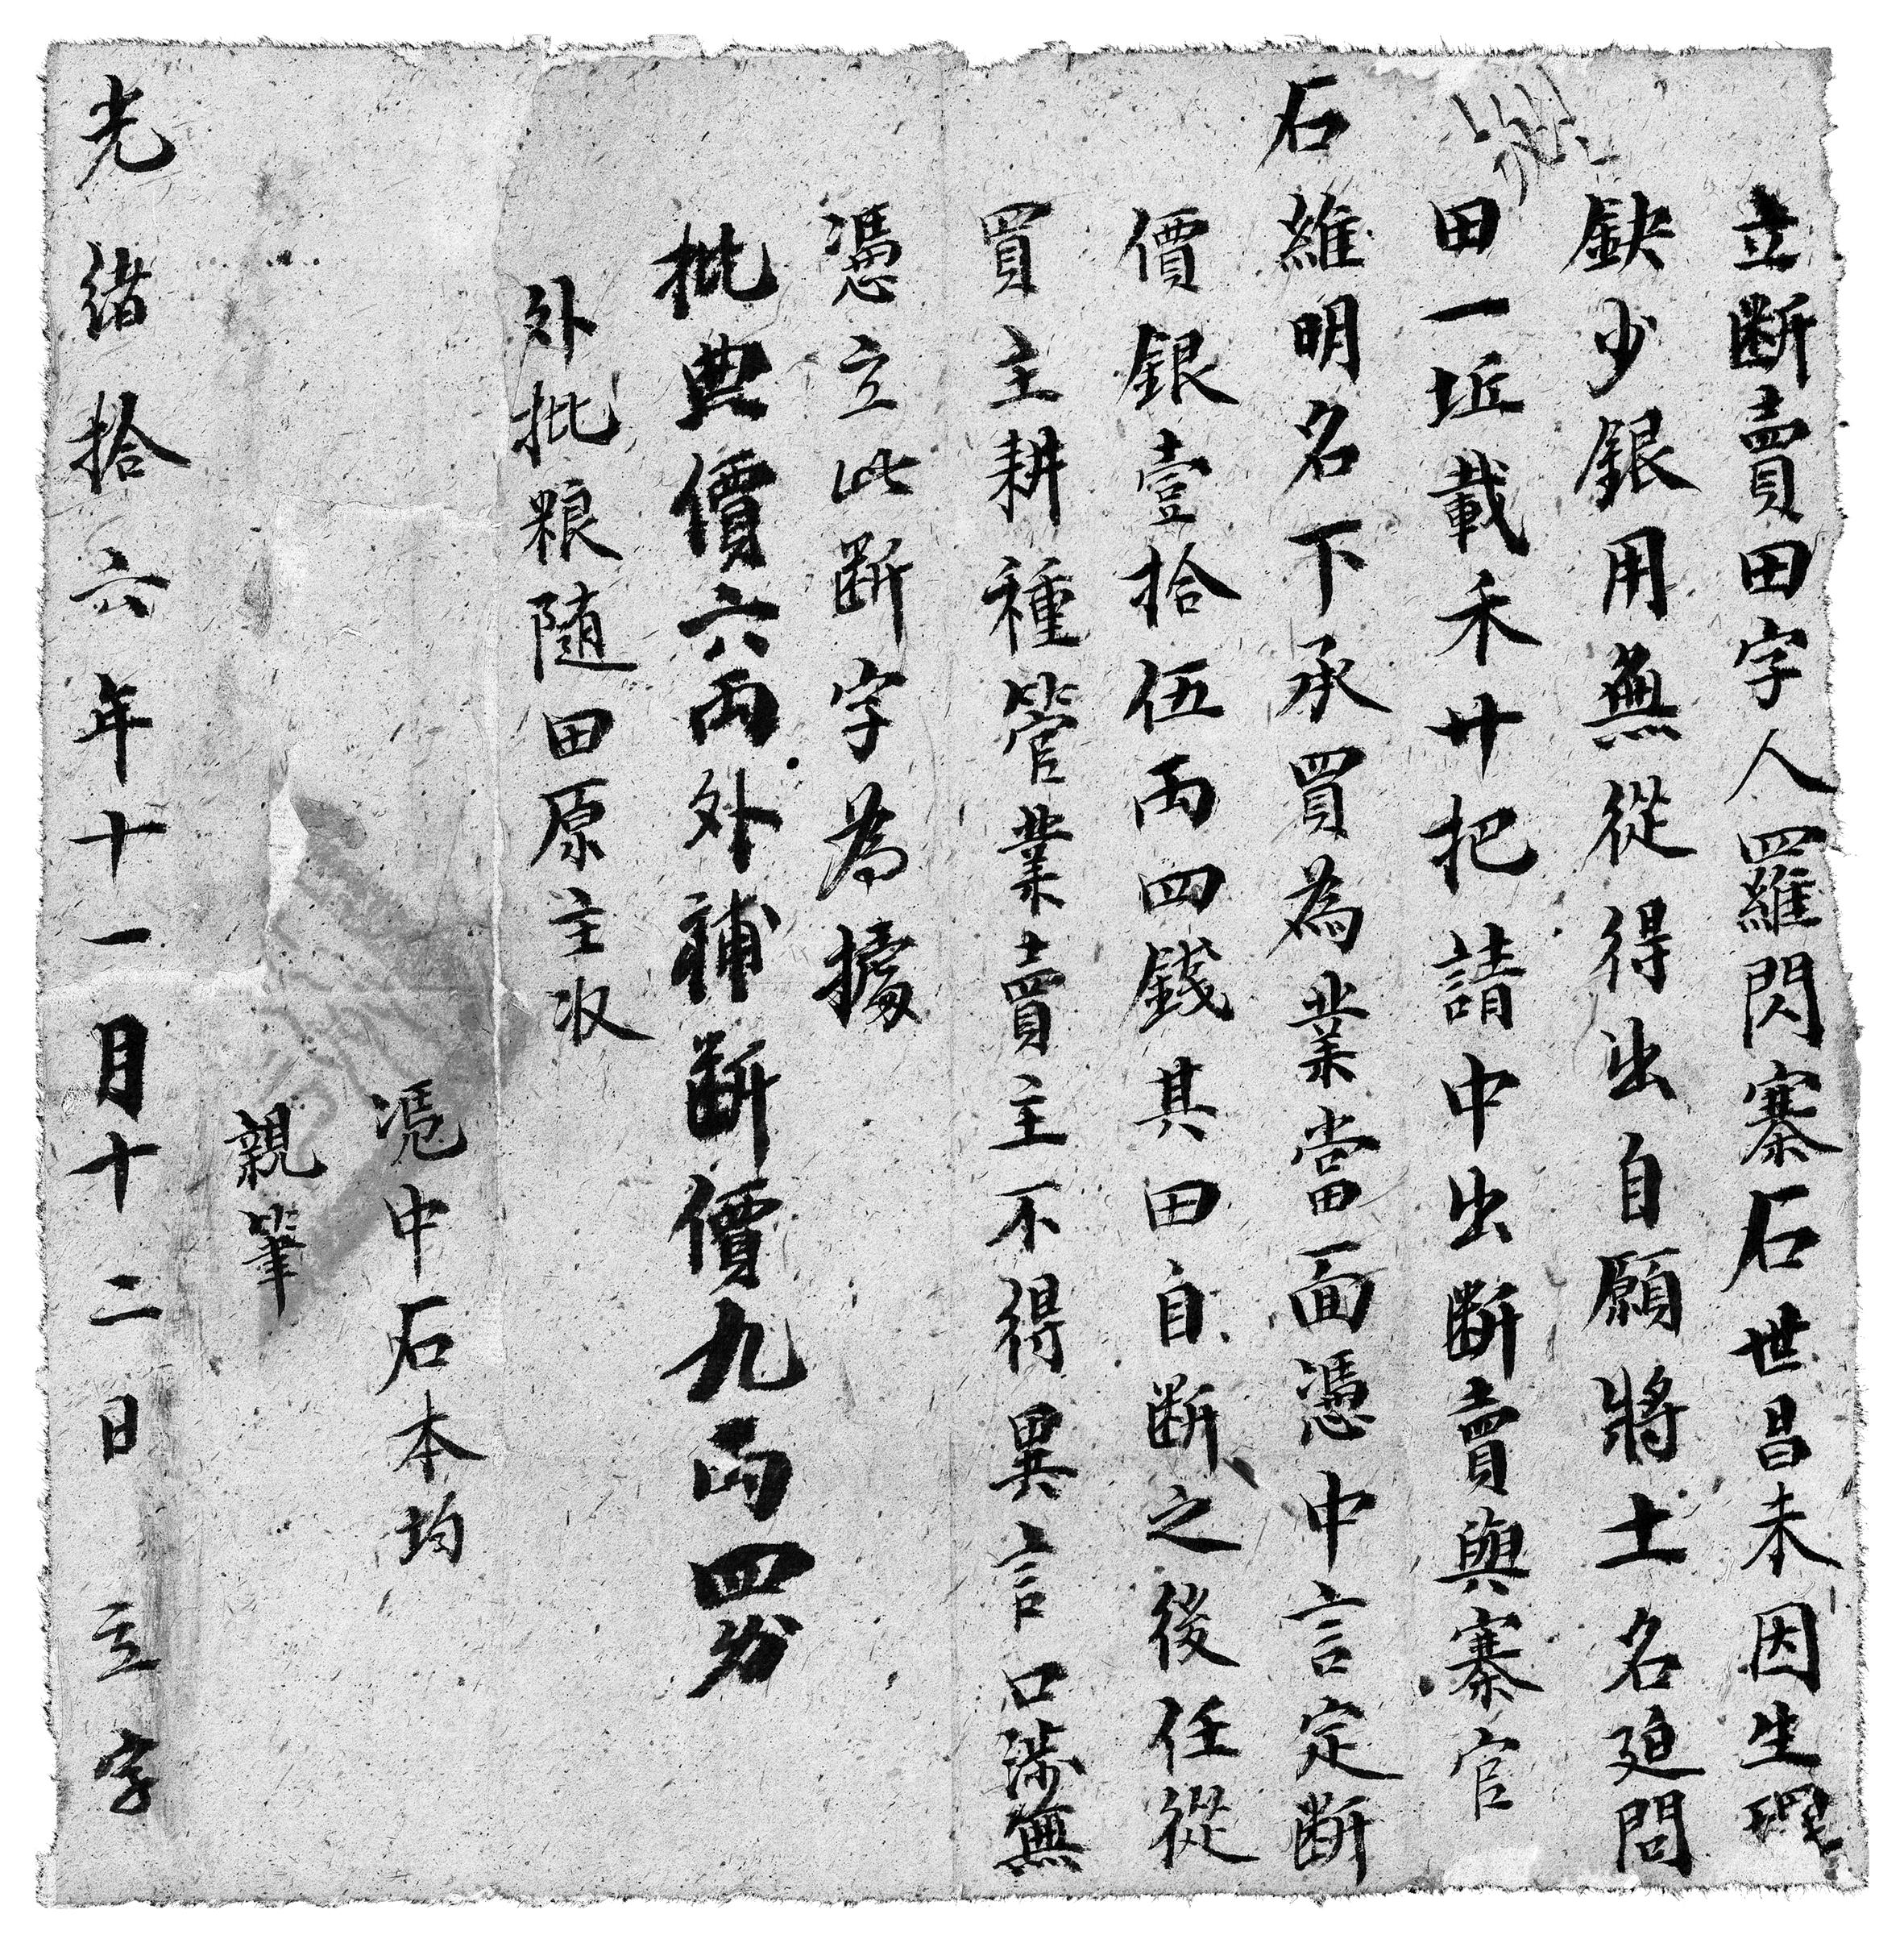 立断賣田字人羅閃寨石世昌未因生理
缺少銀用無從得出自願將土名廹問
田一坵載禾廾把請中出断賣與寨官
石維明名下承買為業當面憑中言定断
價銀壹拾伍両四錢其田自断之後任從
買主耕種管業賣主不得異言口涉無
憑立此断字為據
批典價六両外補断價九両四分
外批粮随田原主收
凴中石本均
親筆
光緒拾六年十一月十二日立字